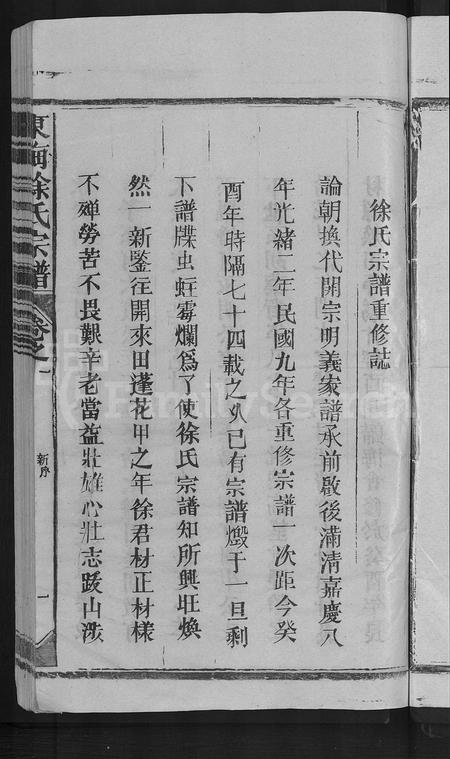 徐氏宗譜重修誌
論朝換代開宗明義家譜承前啟後滿清嘉慶八
年光緒二年民國九年各重修宗譜一次距今癸
酉年時隔七十四載之久已有宗譜燬于一旦剩
下譜牒虫蛀霉爛為了使徐氏宗譜知所興旺煥
然一新鑒往開來田逢花甲之年徐君材正材樣
不殫勞苦不畏艱辛老當益壯雄心壯志跋山涉
東海徐氏宗譜
卷之一
新序
一
FamilySearch